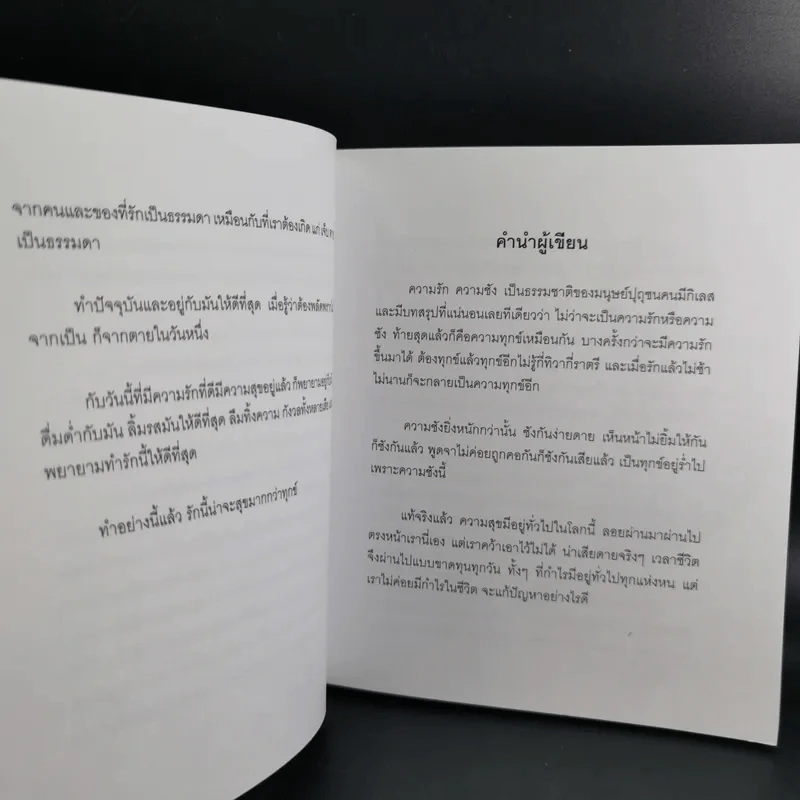 จากคนและของที่รักเป็นธรรมดา เหมือนกับที่เราต้องเกิด แก่ เจ็บ
เป็นธรรมดา
ทำปัจจุบันและอยู่กับมันให้ดีที่สุด เมื่อรู้ว่าต้องพลัดพราก
จากเป็น ก็จากตายในวันหนึ่ง
กับวันนี้ที่มีความรักที่ดีมีความสุขอยู่แล้ว ก็พยายามอยู่กับ
ดื่มด่ำกับมัน ลิ้มรสมันให้ดีที่สุด ลืมทิ้งความ กังวลทั้งหลายเสีย
พยายามทำรักนี้ให้ดีที่สุด
ทำอย่างนี้แล้ว รักนี้น่าจะสุขมากกว่าทุกข์
คำนำผู้เขียน
ความรัก ความชัง เป็นธรรมชาติของมนุษย์ปุถุชนคนมีกิเลส
และมีบทสรุปที่แน่นอนเลยทีเดียวว่า ไม่ว่าจะเป็นความรักหรือความ
ชัง ท้ายสุดแล้วก็คือความทุกข์เหมือนกัน บางครั้งกว่าจะมีความรัก
ขึ้นมาได้ ต้องทุกข์แล้วทุกข์อีกไม่รู้กี่ทิวากี่ราตรี และเมื่อรักแล้วไม่ช้า
ไม่นานก็จะกลายเป็นความทุกข์อีก
ความชังยิ่งหนักกว่านั้น ชังกันง่ายดาย เห็นหน้าไม่ยิ้มให้กัน
ก็ชังกันแล้ว พูดจาไม่ค่อยถูกคอกันก็ชังกันเสียแล้ว เป็นทุกข์อยู่ร่ำไป
เพราะความชังนี้
แท้จริงแล้ว ความสุขมีอยู่ทั่วไปในโลกนี้ ลอยผ่านมาผ่านไป
ตรงหน้าเรานี่เอง แต่เราคว้าเอาไว้ไม่ได้ น่าเสียดายจริงๆ เวลาชีวิต
จึงผ่านไปแบบขาดทุนทุกวัน ทั้งๆ ที่กำไรมีอยู่ทั่วไปทุกแห่งหน แต่
เราไม่ค่อยมีกำไรในชีวิต จะแก้ปัญหาอย่างไรดี